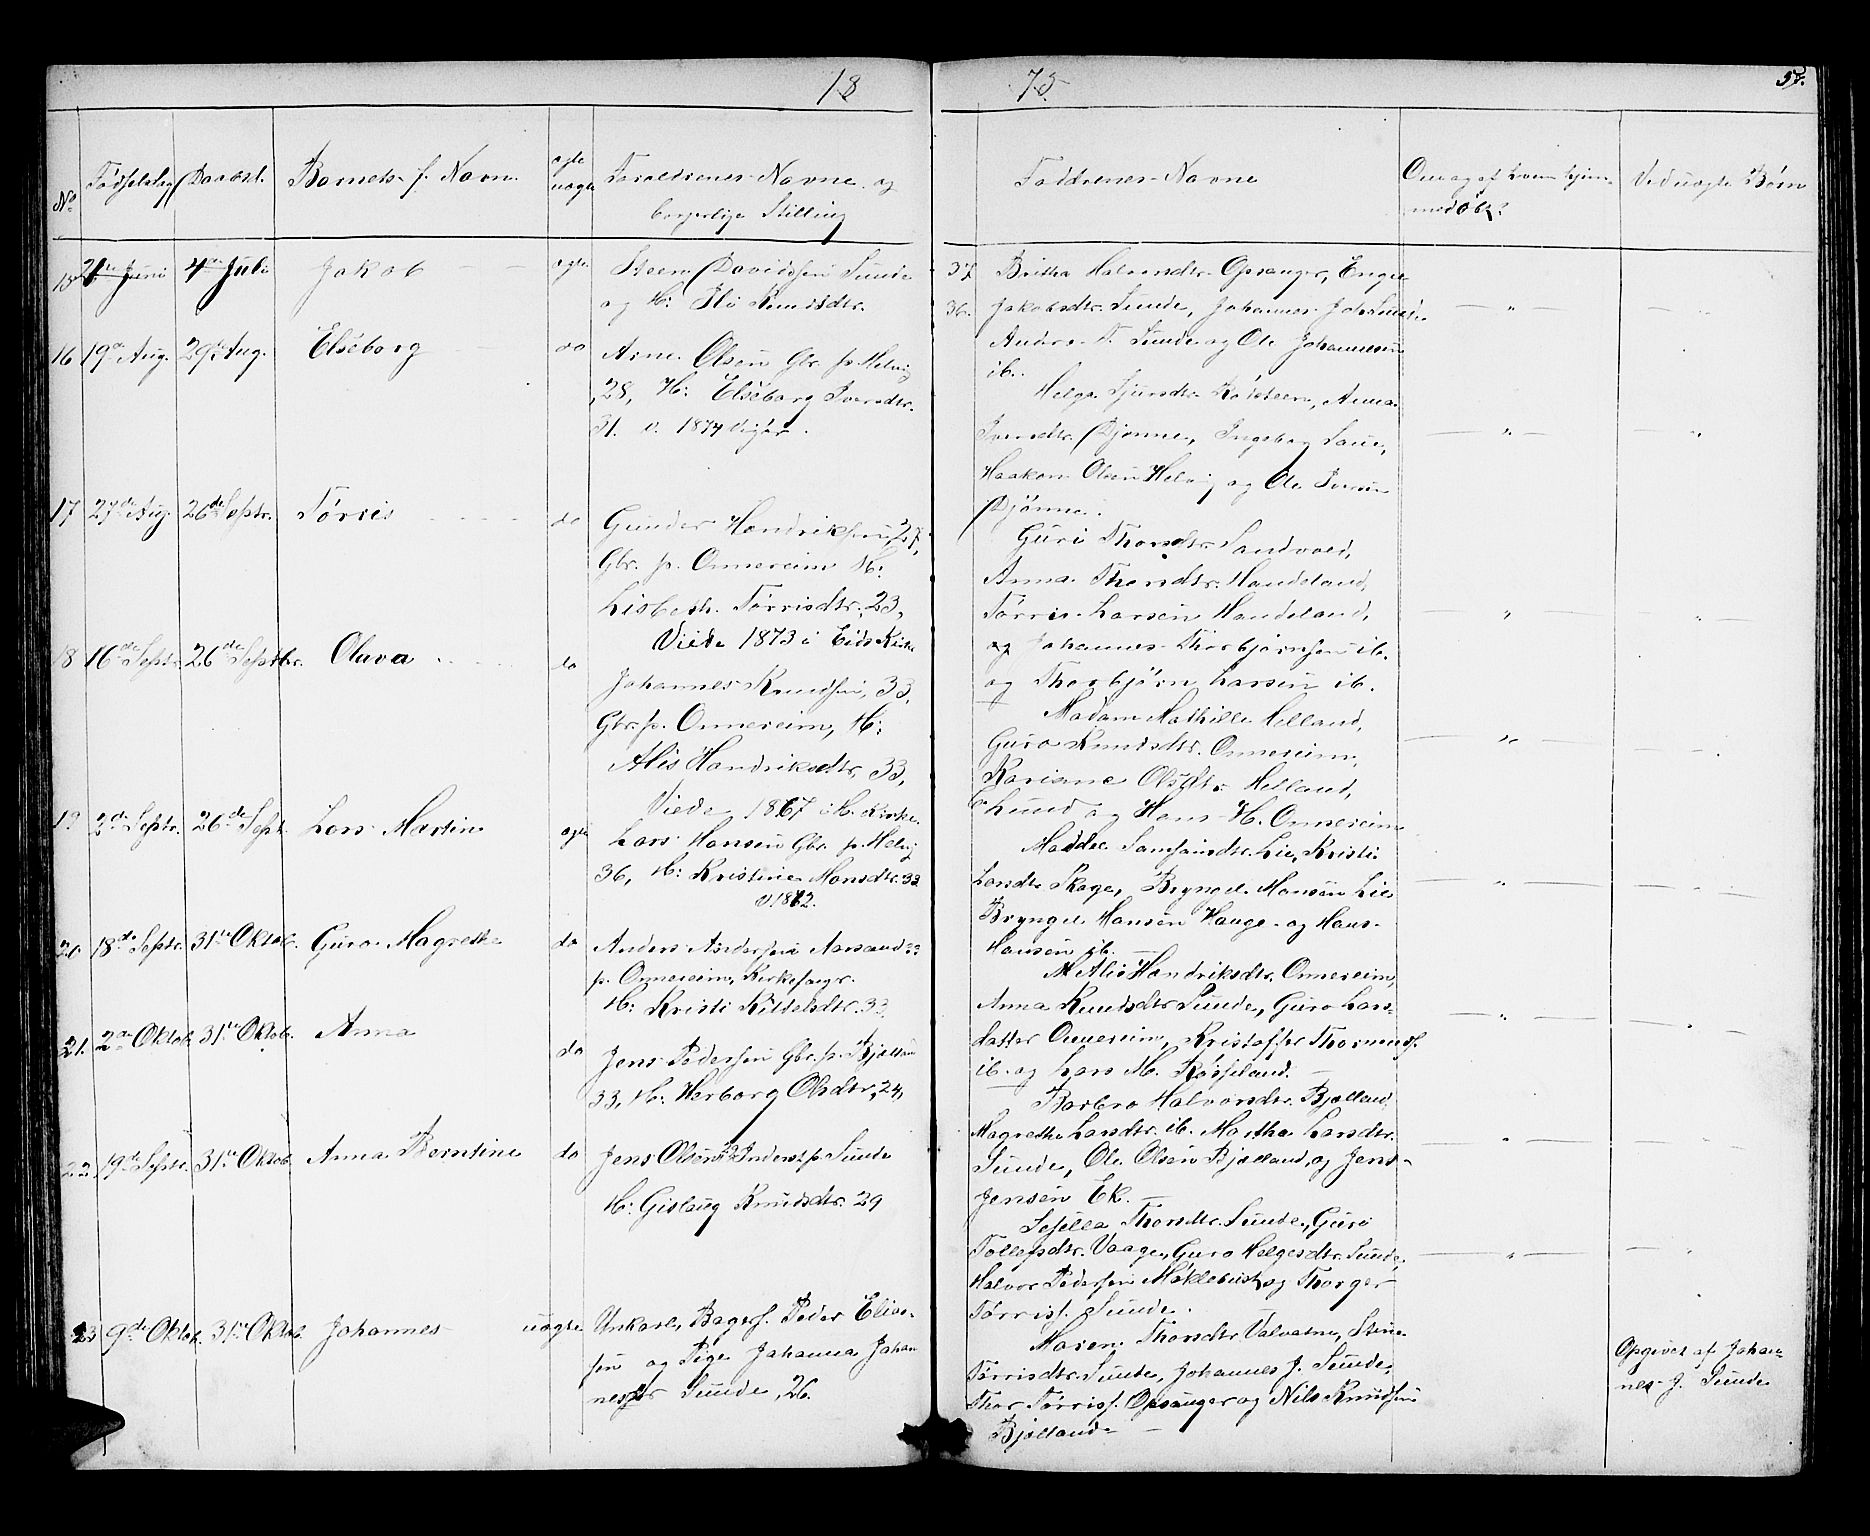 18 75. 57.
No Fødselsdag Daabsd. Barnets f. Navn ægte uægte Forældrenes Navne og borgerlige Stilling
Faddrenes Navne
Om og af hvem hjemmedøbt?
Ved uægte Børn
15 21de Juni 4de Juli Jakob ægte Steen Davidsen Sunde 37
og H: Knudsdtr. 36.
Britha Halvorsdtr. Opsanger, Engel
Jakobsdtr. Sunde, Johannes Sunde
Anders T. Sunde og Ole Johannesen
ib.
16 19de Aug. 29de Aug. Elseborg do Arne Olsen Gbr. p. Helvig
28, H: Elseborg Iversdtr.
31. v. 1874
Helga Sjursdtr. Anna
Iversdtr. Djønne, Ingeborg
Haakon Olsen Helvig og Ole Iversen
Djønne.
17 27de Aug. 26de Septr. Tørris do Gunder Handriksen 27,
Gbr. p. Onnereim H:
Lisbeth Tørrisdtr. 23,
Viede 1873 i Eids Kirke
Guri Thorsdtr. Sandvold,
Anna Thorsdtr. Handeland,
Tørris Larsen Handeland,
og Johannes Thorbjørnsen ib.
og Thorbjørn Larsen ib.
18 16de Septr. 26de Septbr. Olava do Johannes Knudsen, 33,
Gbr. p. Onnereim, H:
Alis Handriksdtr. 33,
Viede 1867 i H. Kirke.
Madam Mathilde Helland,
Guro Knudsdtr. Onnereim,
Kariane Olsdtr. Helland,
Lund og Hans H. Onnereim
19 2de Septr. 26de Sept. Lars Martin ægte Lars Hansen Gbr. p. Helvig
36, H: Kristine Monsdtr. 33
v. 1872.
Madde Samsonsdtr. Lie, Kristi
Larsdtr. Skage, Bryngel Monsen Lie
Bryngel Hansen Hauge og Hans
Hansen ib.
20 18de Septr. 31te Oktob. Guro Magrethe do Anders Andersen
p. Onnereim, Kirkesanger.
H: Kristi Kittelsdtr. 33.
M. Alis Handriksdtr. Onnereim,
Anna Knudsdtr. Sunde, Guro Lars-
datter Onnereim, Kristoffer
ib. og Lars M. Røsseland.
21. 2de Oktob. 31te Oktob. Anna do Jens Pedersen Gbr. p. Bjælland
33, H: Herborg Olsdtr. 24,
Barbro Halvorsdtr. Bjælland
Magrethe Larsdtr. ib. Martha Larsdtr.
Sunde, Ole Olsen Bjælland, og Jens
Jensen Ek.
22. 19de Septr. 31te Oktob. Anna Berntine do Jens Olsen Inderst p. Sunde
H: Gislaug Knudsdtr. 29
Sesella Thorsdtr. Sunde, Guro
Tollefsdtr. Vaage, Guro Helgesdtr. Sunde,
Halvor Pedersen Møklebust og Thorger
Tørriss. Sunde.
23 9de Oktob. 31te Oktob. Johannes uægte Unkarl, Bagers. Peder Elias-
sen og Pige Johanna Johan
nesdtr Sunde, 26.
Maren Thorsdtr. Valvatne, Stine
Tørrisdtr. Sunde, Johannes J. Sunde,
Thor Tørriss. Opsanger og Nils Knudsen
Bjælland
Opgivet af Johan-
nes J. Sunde